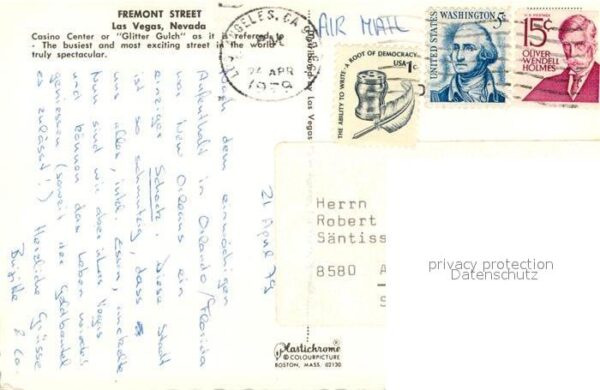 FREMONT STREET
Las Vegas, Nevada
Casino Center or "Glitter Gulch" as it is referred to
- The busiest and most exciting street in the world
truly spectacular.
LOS ANGELES, CA
24 APR
1979
AIR MAIL
THE ABILITY TO WRITE·A ROOT OF DEMOCRACY
USA 1c
UNITED STATES
WASHINGTON 5c
US 15c
OLIVER
WENDELL
HOLMES
Nach dem einwöchigen
Aufenthalt in Orlando/Florida
war New Orleans ein
einziger Schock. Diese Stadt
ist so schmutzig, dass es
uns allen, inkl. Essen, anekelte
Nun sind wir aber in Las Vegas
und können das Leben wieder
geniessen (soweit der Geldbeutel
es zulässt!) Herzliche Grüsse
Brigitte & Co.
21 April 79
by Las Vegas
Herrn
Robert
Säntiss
8580 A
S
Plastichrome®
© COLOURPICTURE
BOSTON, MASS. 02130
privacy protection
Datenschutz